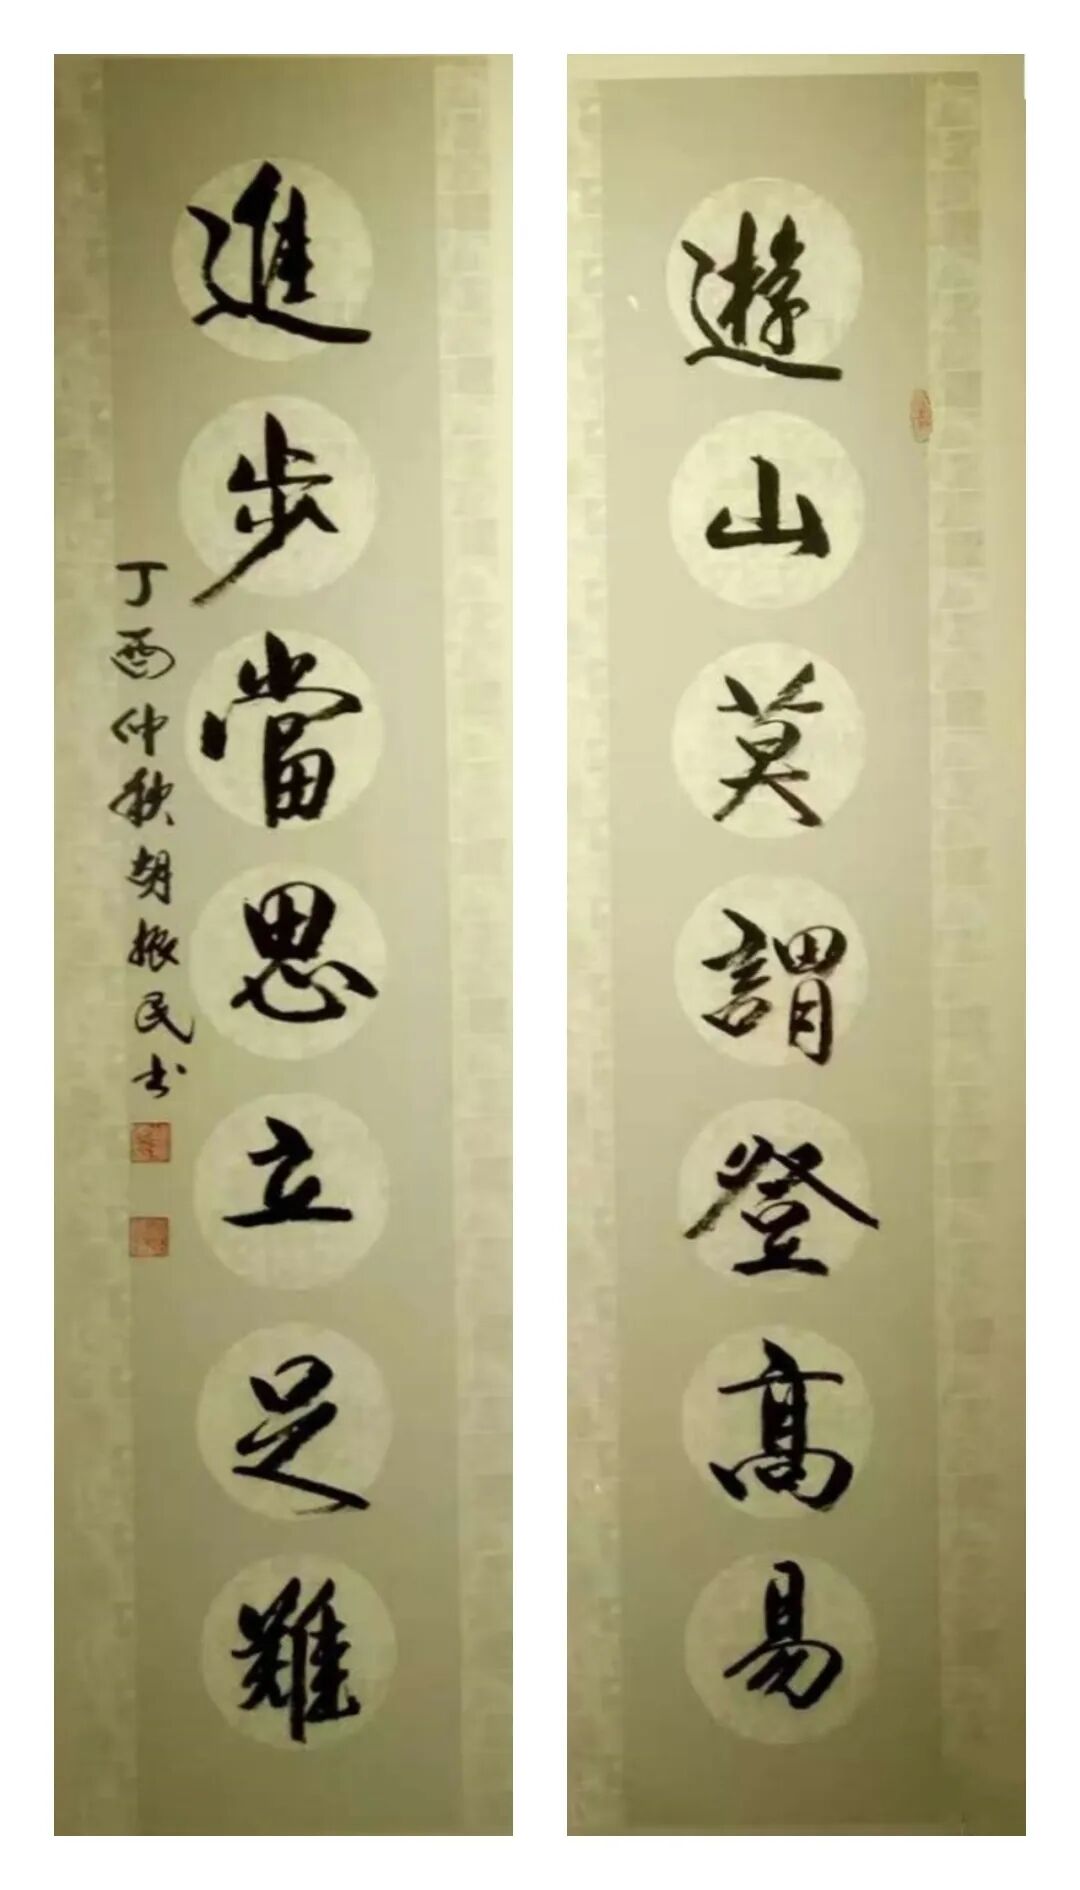 遊山莫謂登高易
進步當思立足難
丁酉仲秋胡振民书